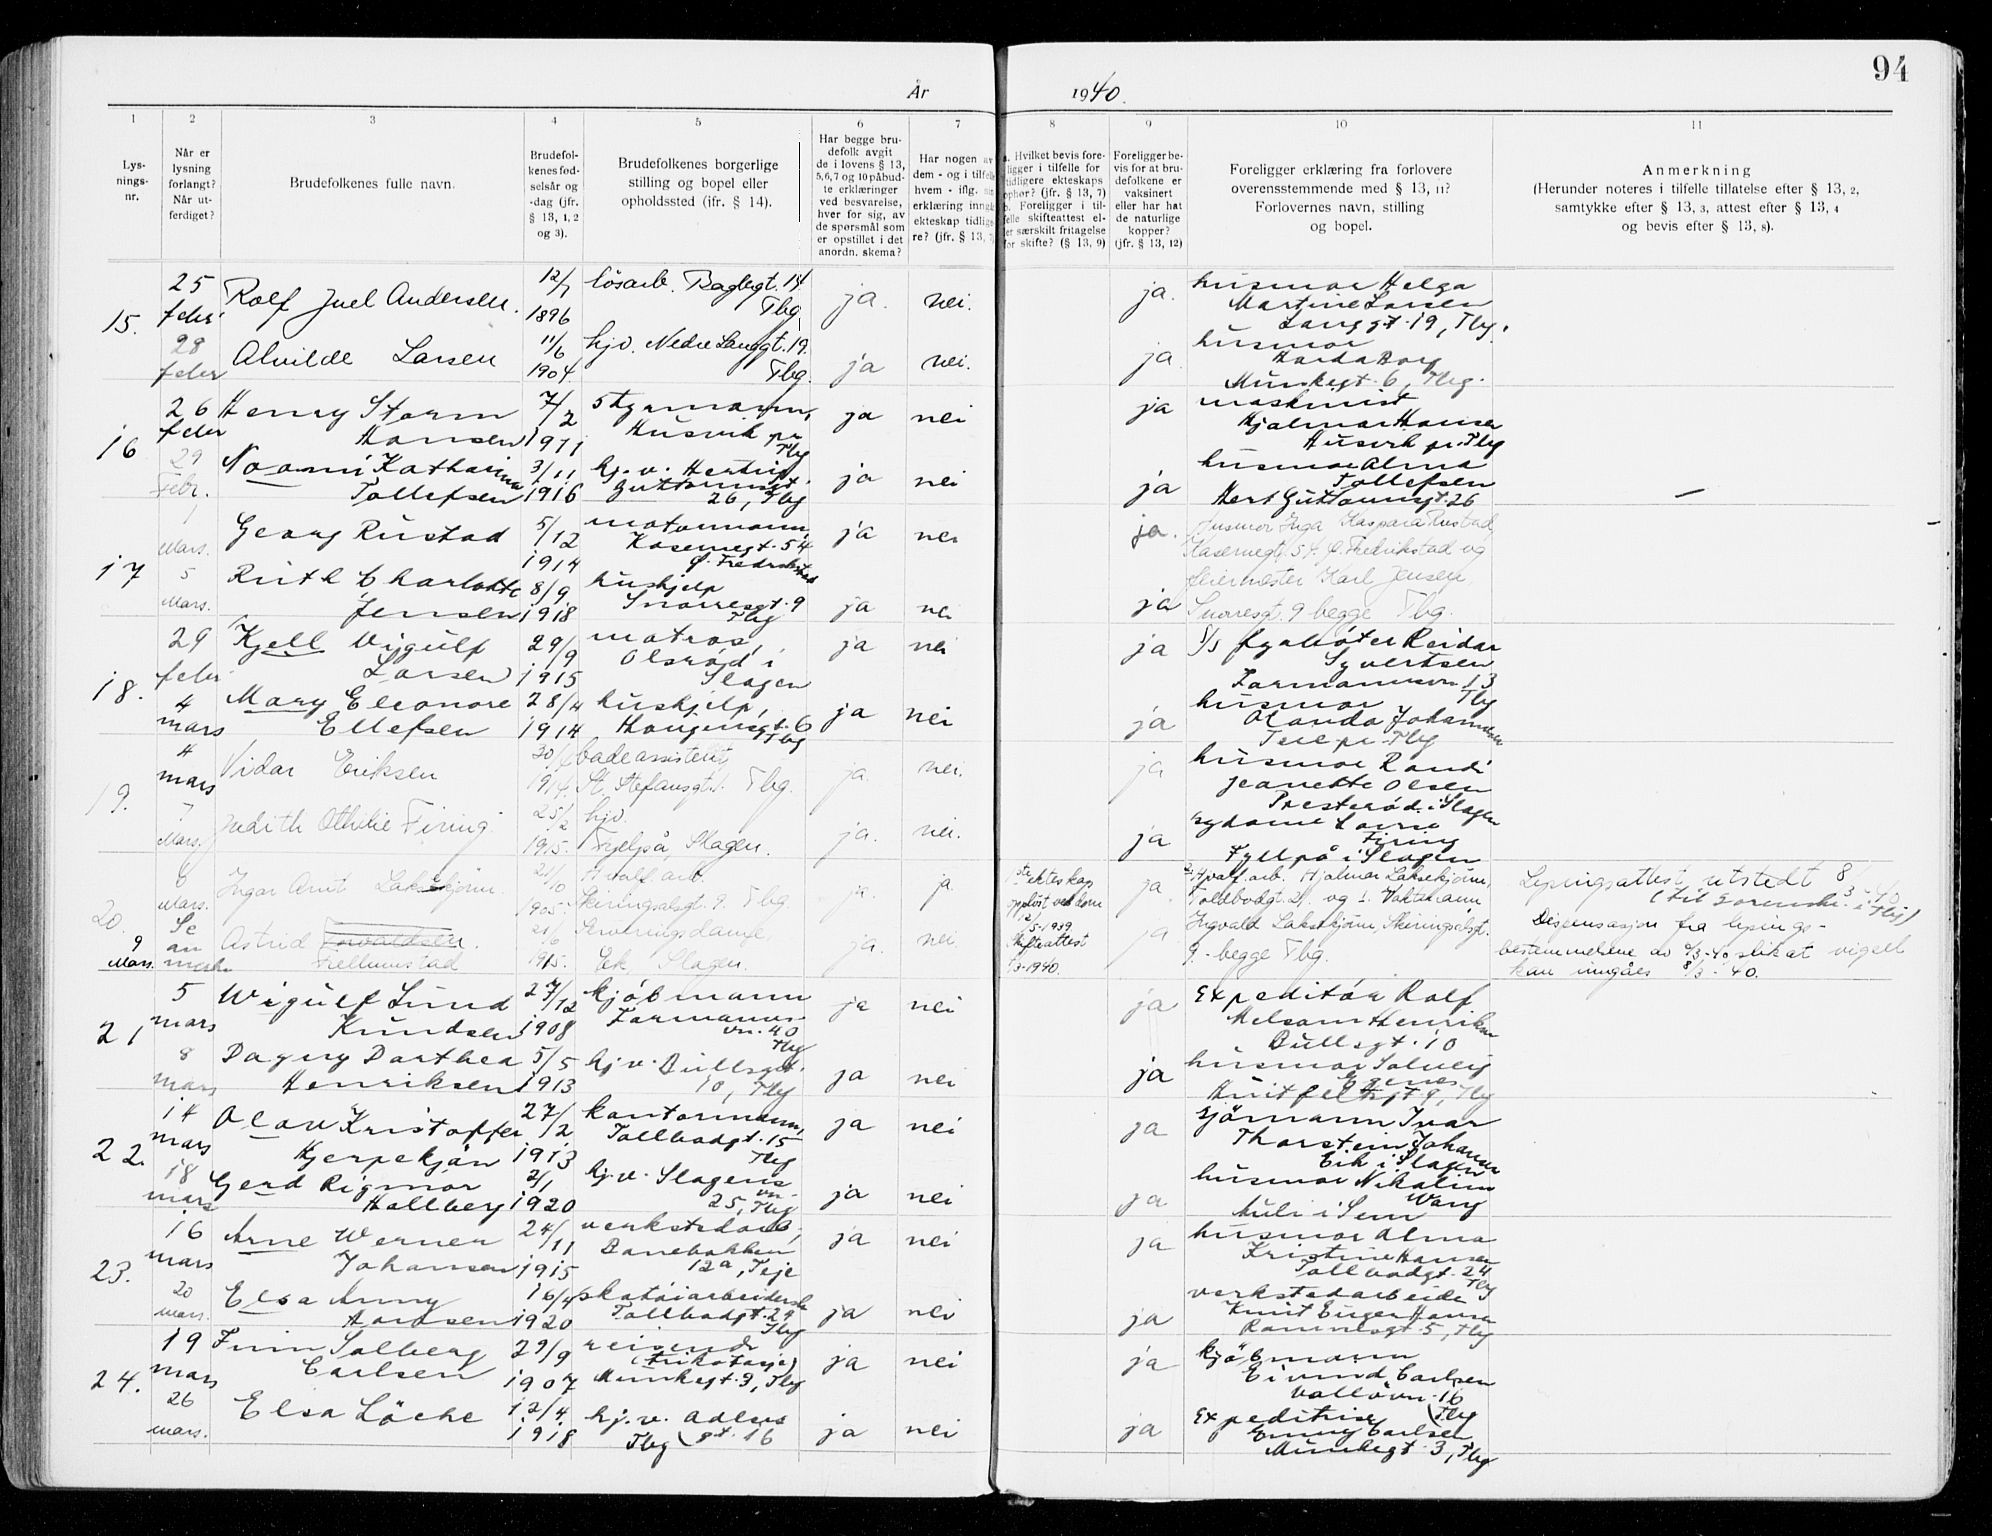 94
År 1940.
1 2 3 4 5 6 7 8 9 10 11
Lys-
nings-
nr.
Når er
lysning
forlangt?
Når ut-
ferdiget?
Brudefolkenes fulle navn.
Brudefol-
kenes fød-
selsår og
-dag (jfr.
§ 13, 1, 2
og 3).
Brudefolkenes borgerlige
stilling og bopel eller
opholdssted (ifr. § 14).
Har begge bru-
defolk avgit
de i lovens § 13,
5,6,7 og 10 påbud-
te erklæringer
ved besvarelse,
hver for sig, av
de spørsmål som
er opstillet i det
anordn. skema?
Har nogen av
dem - og i tilfelle
hvem - iflg. sin
erklæring inngå
ekteskap tidlige-
re? (jfr. § 13,
a. Hvilket bevis fore-
ligger i tilfelle for
tidligere ekteskaps
ophør? (jfr. § 13, 7)
b. Foreligger i til-
felle skifteattest el-
ler særskilt fritagelse
for skifte? (§ 13, 9)
Foreligger be-
vis for at bru-
defolkene er
vaksinert
eller har hat
de naturlige
kopper?
(jfr. § 13, 12)
Foreligger erklæring fra forlovere
overensstemmende med § 13, 11?
Forlovernes navn, stilling
og bopel.
Anmerkning
(Herunder noteres i tilfelle tillatelse efter § 13, 2,
samtykke efter § 13, 3, attest efter § 13, 4
og bevis efter § 13, 8).
15.
25 febr. Rolf Juel Andersen. 12/7 1896 løsarb. Baglergt. 14 Tbg ja. nei. ja.
husmor Helga
Martine Larsen
Langgt. 19, Tbg.
28 febr Alvilde Larsen 11/6 1904 hjv. Nedre Langgt. 19. Tbg. ja nei. ja.
husmor
Munkegt. 6, Tbg.
16
26 febr Henry Storm Hansen 7/2 1911 styrmann, Husvik pr Tbg ja nei ja
maskinist
Hjalmar Hansen
Husvik pr. Tbg
29 Febr. Noomi Katharina Tollefsen 3/11 1916 hj. v. Hertug Guttormsgt. 26, Tbg ja nei ja
husmor Alma
Tollefsen
Hert Guttormsgt. 26
17
1 Mars. Georg Rustad 5/12 1914 motormann, Kasernegt. 54 Ø. Fredrikstad ja nei ja.
husmor Inga Kaspara Rustad,
Kasernegt. 54, Ø. Fredrikstad og
feiermester Karl Jensen,
Snorresgt. 9 begge Tbg.
5 Mars. Ruth Charlotte Jensen 8/9 1918 hushjelp Snorresgt. 9 Tbg ja nei ja
18.
29 febr Kjell Wigulf Larsen 29/9 1915 matros, Olsrød i Slagen ja nei ja
s/s fyrbøter Reidar
Syvertsen
Farmannsvn 13
Tbg
4 mars Mary Eleonore Ellefsen 28/4 1914 hushjelp, Haugensgt. 6 Tbg ja nei ja
husmor
Olanda Johannessen
Teie pr Tbg
19.
4 mars Vidar Eriksen 1914. badeassistent, St. Stefansgt. 1. Tbg. ja. nei. ja
husmor Randi
Jeanette Olsen
Presterød i Slagen
7 Mars. Judith Othilie Firing. 25/2 1915. hjv. Fyllpå, Slagen. ja. nei. ja
sydame Laura
Firing
Fyllpå i Slagen
20.
6 Mars. Ingar Arnt Laksekjøn. 21/10 1905. Hvalf. arb. Skiringsalsgt. 9. Tbg. ja. ja
1ste ekteskap
oppløst ved dom
12/5-1939
Skifteattest
1/3-1940.
ja.
Hvalf. arb. Hjalmar Laksekjønn,
Toldbodgt. 21. og 1. Vaktmann
Ingvald Laksekjønn Skiringsalsgt.
9 - begge Tbg.
Lysingsattest utstedt 8/3-40
Dispensasjon fra lysings-
bestemmelsene av 6/3-40, slik at vigsel
kan inngåes 8/3-40.
9 Mars. Se an merkn Astrid Tellumstad 21/6 1915. Serveringsdame, Ek, Slagen. ja. nei. ja
21
5 mars Wigulf Lund Knudsen 27/12 1908 kjøbmann Farmanns- vn. 40 Tbg ja nei ja
Expeditør Rolf
Melsom Henriksen
Bullsgt. 10
8 mars Dagny Dorthea Henriksen 5/5 1913 hj. v. Bullsgt. 10, Tbg ja nei ja
husmor Solveig
Huitfeldtsgt 9, Tbg
22.
14 mars Olav Kristoffer Hjerpekjøn 27/2 1913 kontormann, Tollbodgt. 15 Tbg ja nei ja
sjømann Ivar
Thorstein Johansen
Eik i Slagen
18 mars Gerd Rigmor Hallberg 2/1 1920 hj. v. Slagens vn. 25, Tbg ja nei ja
husmor Nikoline
Wang
Auli i Sem
23.
16 mars Arne Werner Johansen 24/11 1915 verkstedarb, Banebakken 12a, Teje ja nei ja
husmor Alma
Kristine Hansen
Tollbodgt. 24
Tbg
20 mars. Elsa Anny Hansen 16/4 1920 skotøiarbeiderske Tollbodgt. 29 Tbg ja nei ja
verkstedarbeider
Knut Eugen Hansen
Rammsgt. 5, Tbg
24.
19 mars Finn Solberg Carlsen 29/9 1907 reisende (Trikotasje) Munkegt. 3, Tbg ja nei ja
kjøbmann
Eivind Carlsen
Valløvn. 16
Tbg
26 mars. Elsa Løche 12/4 1918 hj. v. Adlers gt. 16 Tbg ja nei ja
Expeditrise
Emmy Carlsen
Munkegt. 3, Tbg